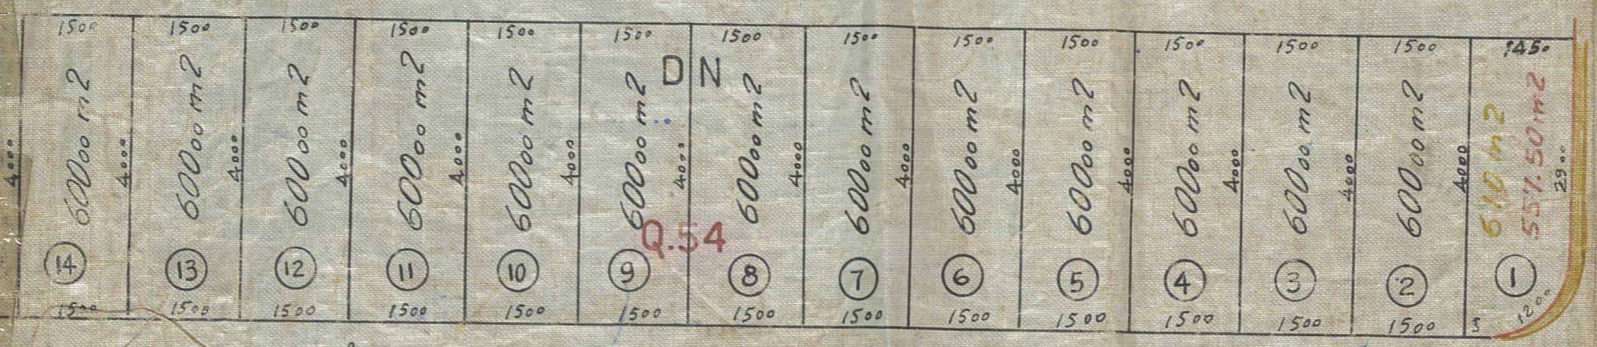 1500 1500 1500 1500 1500 1500 1500 1500 1500 1500 1500 1500 1500 1450
D N
4000 60000 m2 4000 60000 m2 4000 60000 m2 4000 60000 m2 4000 60000 m2 4000 60000 m2 4000 60000 m2 4000 60000 m2 4000 60000 m2 4000 60000 m2 4000 60000 m2 4000 60000 m2 4000 60000 m2 4000 610 m2 557.50 m2 2900
Q.54
14 13 12 11 10 9 8 7 6 5 4 3 2 1
1500 1500 1500 1500 1500 1500 1500 1500 1500 1500 1500 1500 1500 3 1200